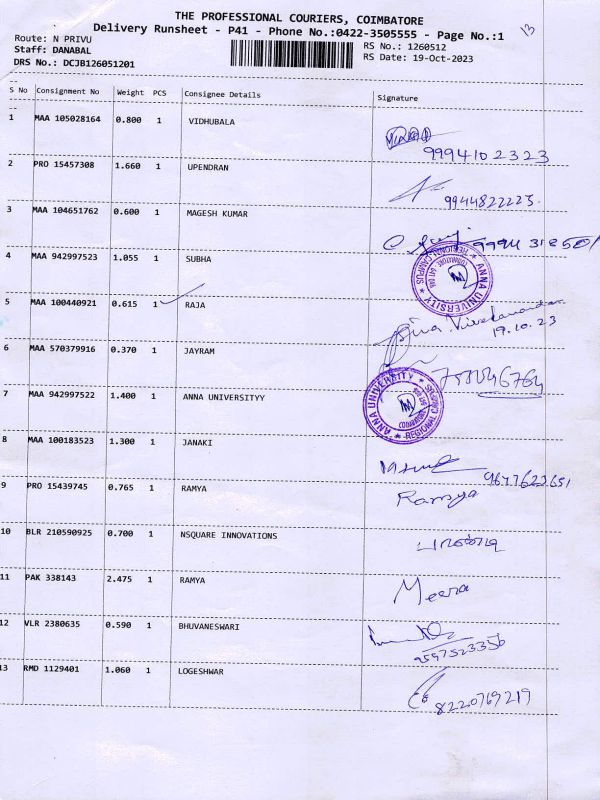 THE PROFESSIONAL COURIERS, COIMBATORE
13
Delivery Runsheet - P41 - Phone No.:0422-3505555 - Page No.:1
Route: N PRIVU
RS No.: 1260512
Staff: DANABAL
RS Date: 19-Oct-2023
DRS No.: DCJB126051201
S No Consignment No Weight PCS Consignee Details Signature
1 MAA 105028164 0.800 1 VIDHUBALA
9994102323
2 PRO 15457308 1.660 1 UPENDRAN
9944822225
3 MAA 104651762 0.600 1 MAGESH KUMAR
4 MAA 942997523 1.055 1 SUBHA
ANNA UNIVERSITY REGIONAL CAMPUS
5 MAA 100440921 0.615 1 RAJA
19.10.23
6 MAA 570379916 0.370 1 JAYRAM
7 MAA 942997522 1.400 1 ANNA UNIVERSITYY
ANNA UNIVERSITY REGIONAL CAMPUS
8 MAA 100183523 1.300 1 JANAKI
9677623651
9 PRO 15439745 0.765 1 RAMYA
Ramya
10 BLR 210590925 0.700 1 NSQUARE INNOVATIONS
11 PAK 338143 2.475 1 RAMYA
Meera
12 VLR 2380635 0.590 1 BHUVANESWARI
9597523356
13 RMD 1129401 1.060 1 LOGESHWAR
8220769219